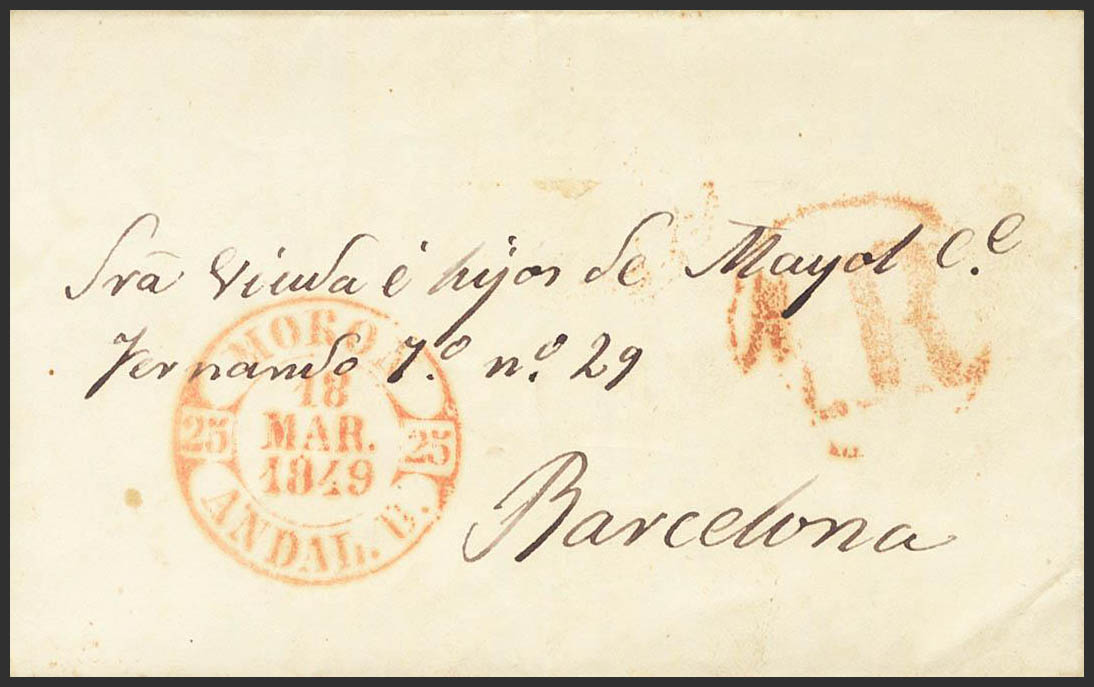 Srā Viuda é hijos de Mayol C.e
Fernando 7.o n.o 29
Barcelona
MORON
18
MAR.
1849
25 25
ANDAL. B.
R